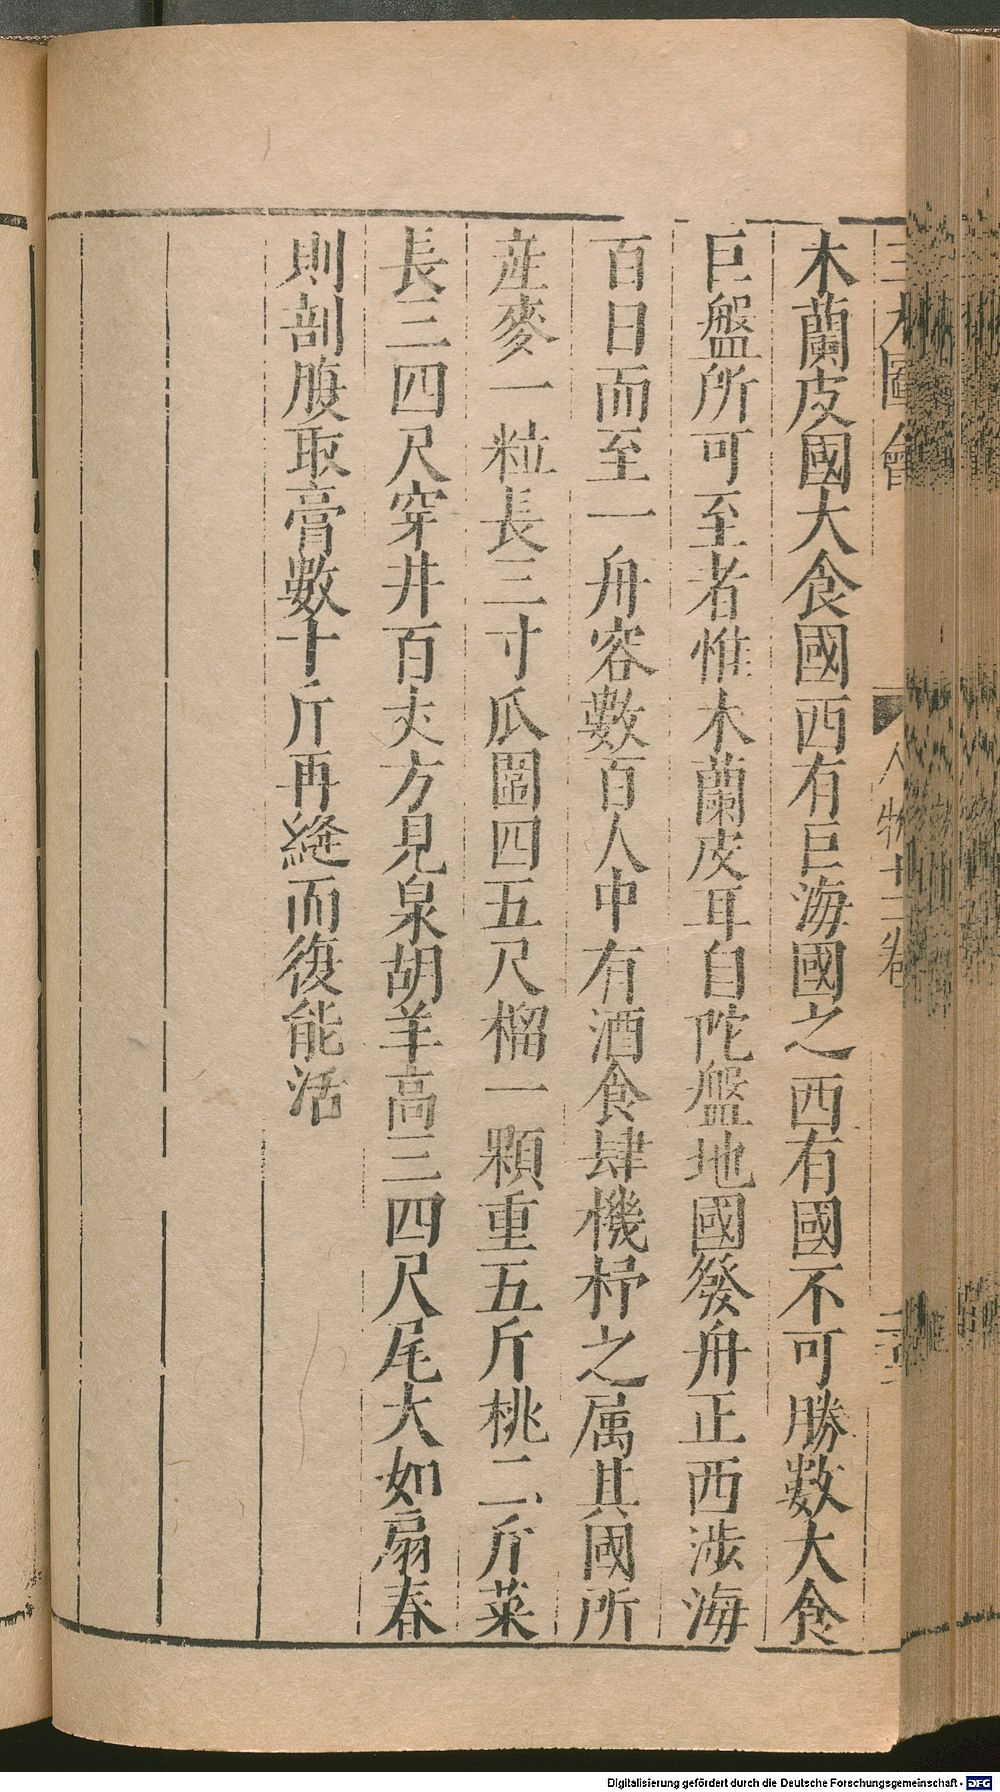 三才圖會
人物十二卷
木蘭皮國大食國西有巨海國之西有國不可勝數大食
巨盤所可至者惟木蘭皮耳自陀盤地國發舟正西涉海
百日而至一舟容數百人中有酒食肆機杼之属其國所
産麥一粒長三寸瓜圍四五尺榴一顆重五斤桃二斤菜
長三四尺穿井百丈方見泉胡羊高三四尺尾大如扇春
則剖腹取膏數十斤再縫而復能活
Digitalisierung gefördert durch die Deutsche Forschungsgemeinschaft - DFG